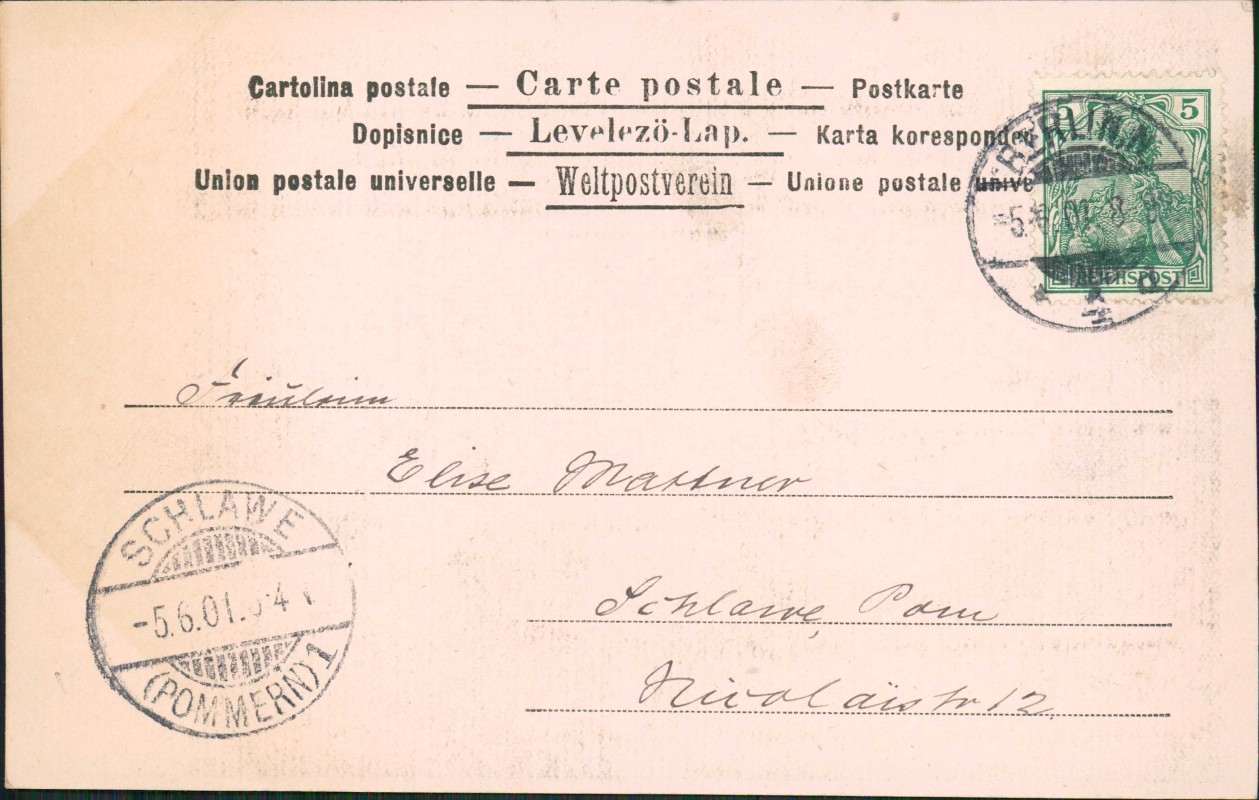 Cartolina postale — Carte postale — Postkarte
Dopisnice — Levelezö-Lap. — Karta koresponden
Union postale universelle — Weltpostverein — Unione postale unive
5
REICHSPOST
BERLIN N
-5.6.01. 8-9
* 4 d
Fräulein
Elise Mattner
Schlawe, Pom
Nicolaistr 12.
SCHLAWE
-5.6.01. -4
(POMMERN) 1